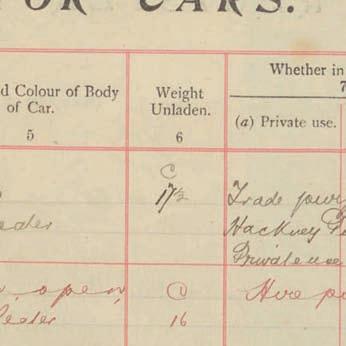 FOR CARS.
d Colour of Body
of Car.
5
Weight
Unladen.
6
Whether in
7
(a) Private use.
C
17½
Trade pur
Hackney
Private use
open
C
16
Hire p